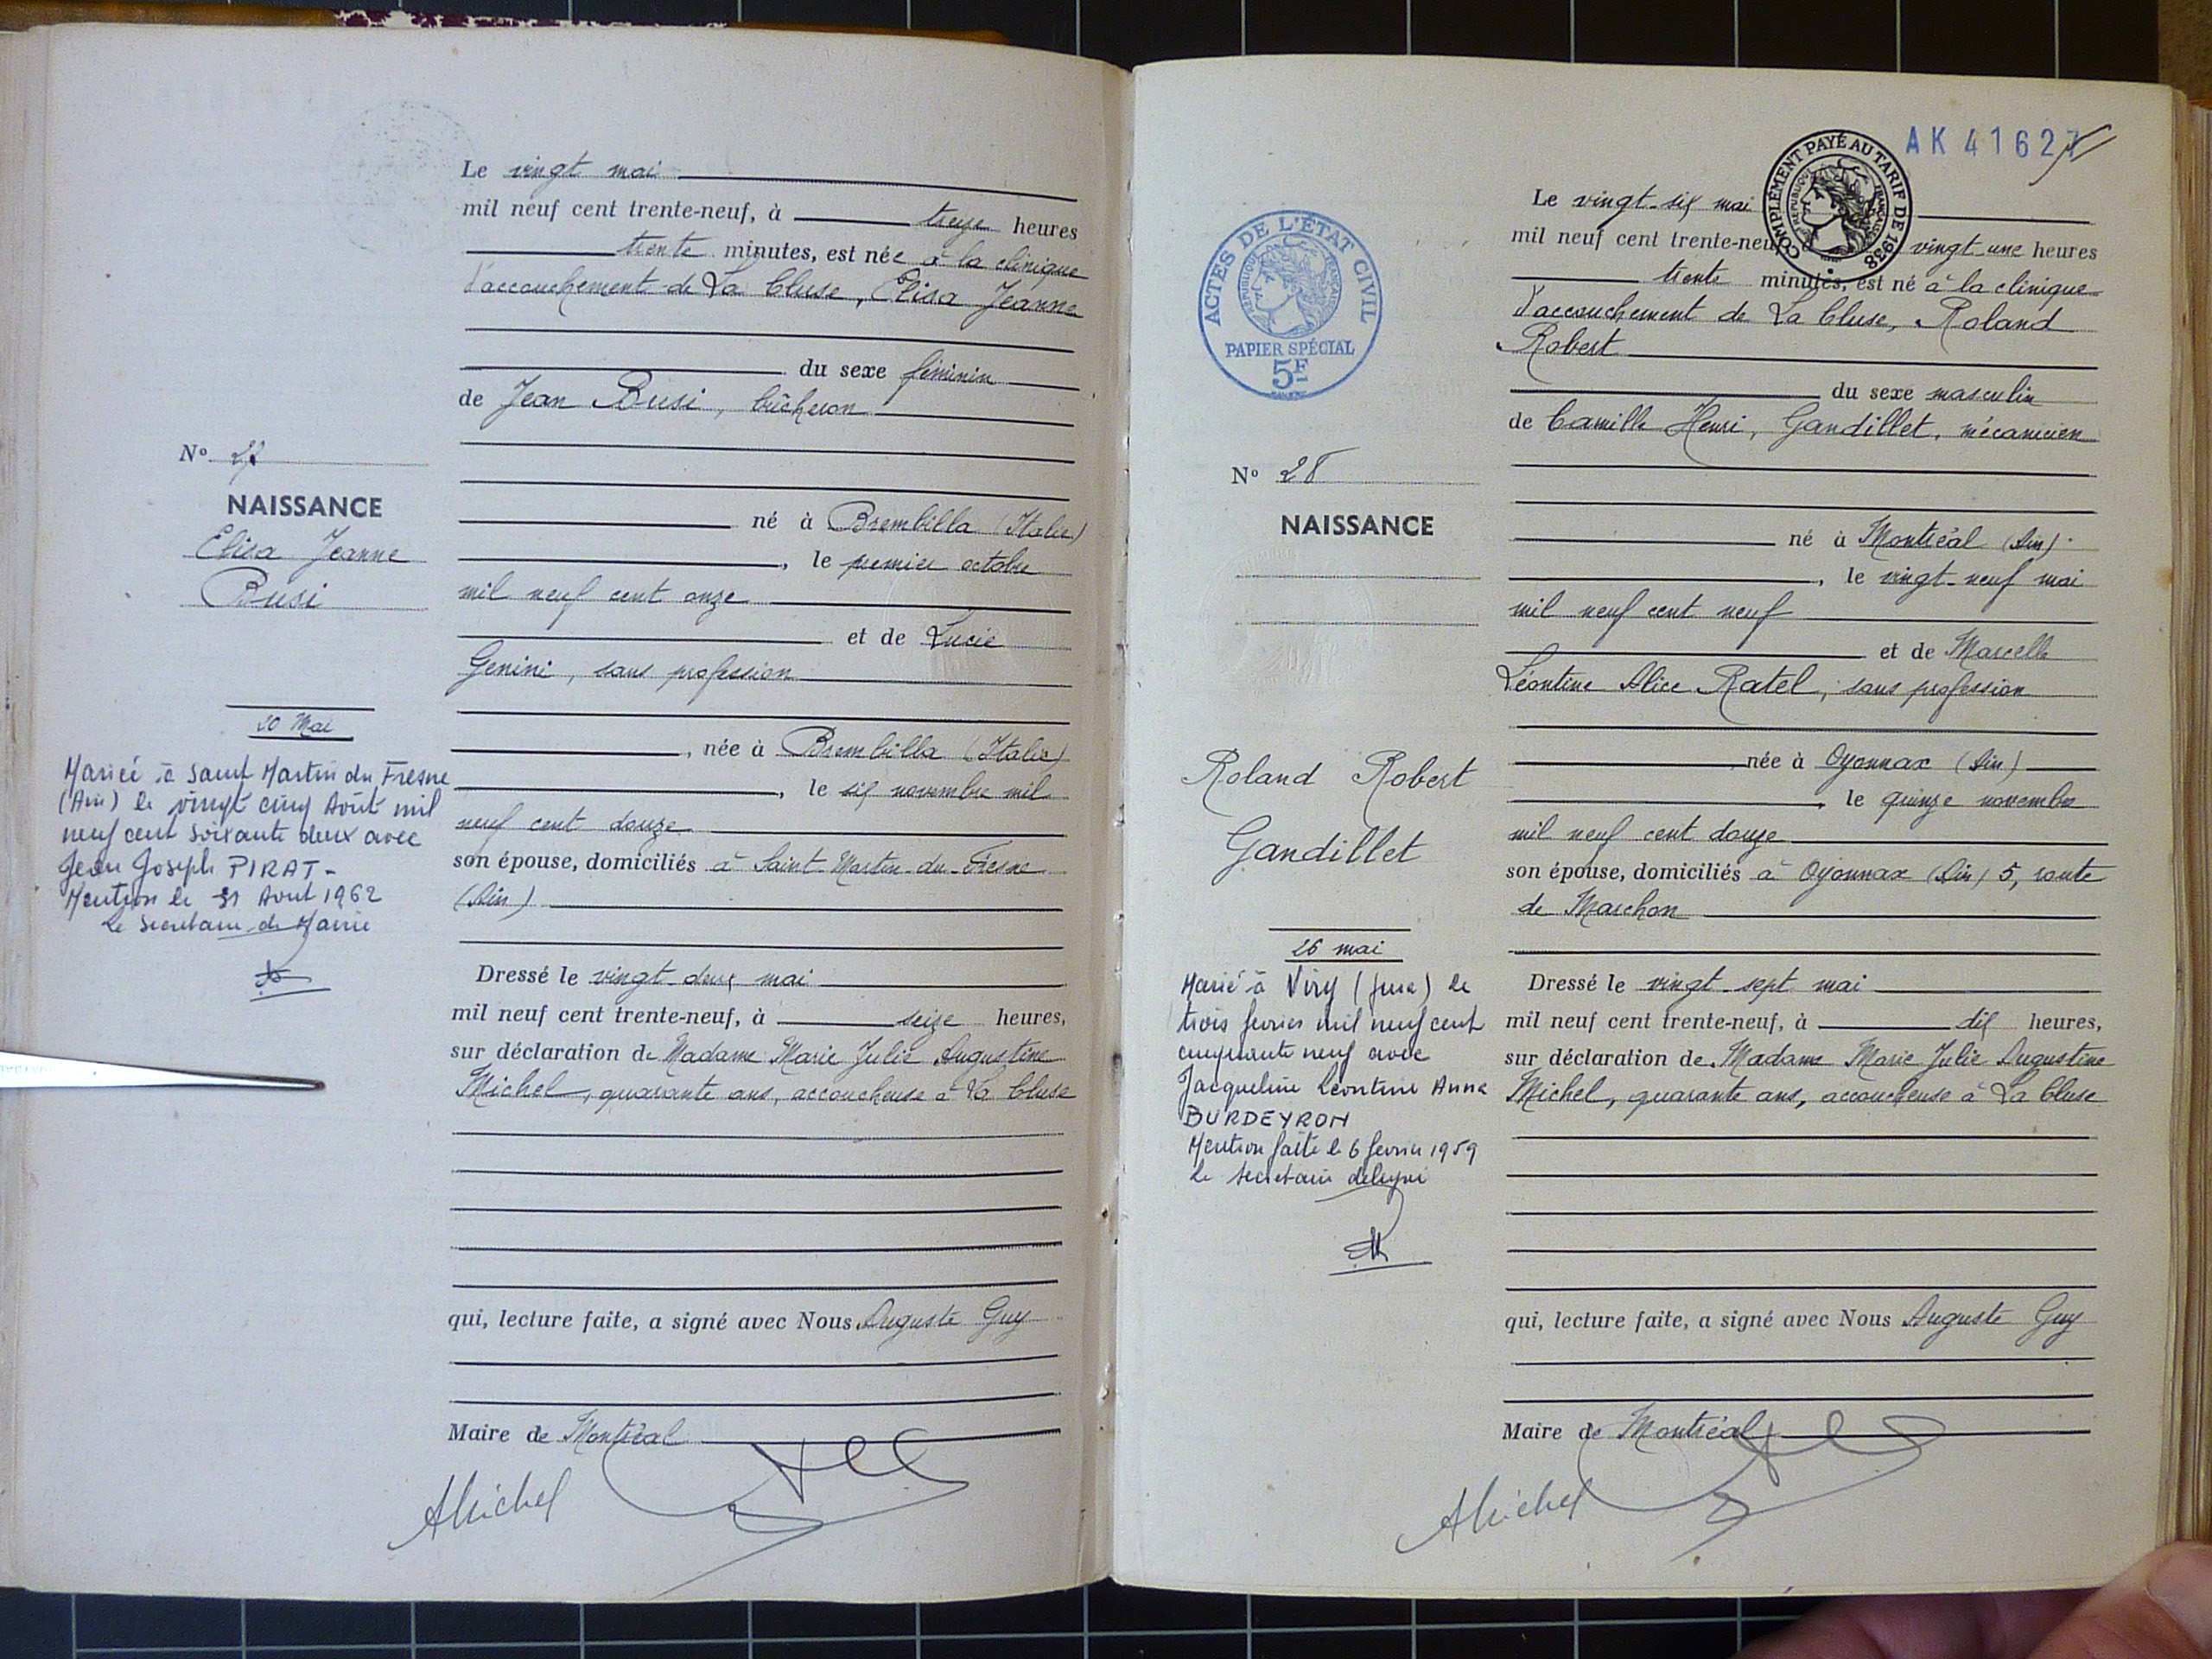 Le vingt mai
mil neuf cent trente-neuf, à treize heures
trente minutes, est née à la clinique
d'accouchement de La Cluse, Elisa Jeanne
du sexe féminin
de Jean Busi, bûcheron
né à Brembilla (Italie)
, le premier octobre
mil neuf cent onze
et de Lucie
Genini, sans profession
, née à Brembilla (Italie)
, le six novembre mil
neuf cent douze
son épouse, domiciliés à Saint-Martin-du-Fresne
(Ain)
Dressé le vingt-deux mai
mil neuf cent trente-neuf, à seize heures,
sur déclaration de Madame Marie Julie Augustine
Michel, quarante ans, accoucheuse à La Cluse
qui, lecture faite, a signé avec Nous Auguste Guy
Maire de Montréal
AMichel
No 27
NAISSANCE
Elisa Jeanne
Busi
20 Mai
Mariée à Saint Martin du Fresne
(Ain) le vingt cinq Août mil
neuf cent soixante deux avec
Jean Joseph PIRAT-
Mention le 31 Aout 1962
Le Secretaire de Mairie
AK 41627
COMPLÉMENT PAYÉ AU TARIF DE 1938
RÉPUBLIQUE FRANÇAISE
Le vingt-six mai
mil neuf cent trente-neuf, vingt-une heures
trente minutes, est né à la clinique
d'accouchement de La Cluse, Roland
Robert
du sexe masculin
de Camille Henri, Gandillet, mécanicien
né à Montréal (Ain)
, le vingt-neuf mai
mil neuf cent neuf
et de Marcelle
Léontine Alice Ratel, sans profession
née à Oyonnax (Ain)
, le quinze novembre
mil neuf cent douze
son épouse, domiciliés à Oyonnax (Ain) 5, route
de Marchon
Dressé le vingt-sept mai
mil neuf cent trente-neuf, à dix heures,
sur déclaration de Madame Marie Julie Augustine
Michel, quarante ans, accoucheuse à La Cluse
qui, lecture faite, a signé avec Nous Auguste Guy
Maire de Montréal
AMichel
ACTES DE L'ÉTAT CIVIL
RÉPUBLIQUE FRANÇAISE
PAPIER SPÉCIAL
5F
No 28
NAISSANCE
Roland Robert
Gandillet
26 mai
Marié à Viry (Jura) le
trois fevrier mil neuf cent
cinquante neuf avec
Jacqueline Leontine Anna
BURDEYRON
Mention faite le 6 fevrier 1959
Le secretaire delegué